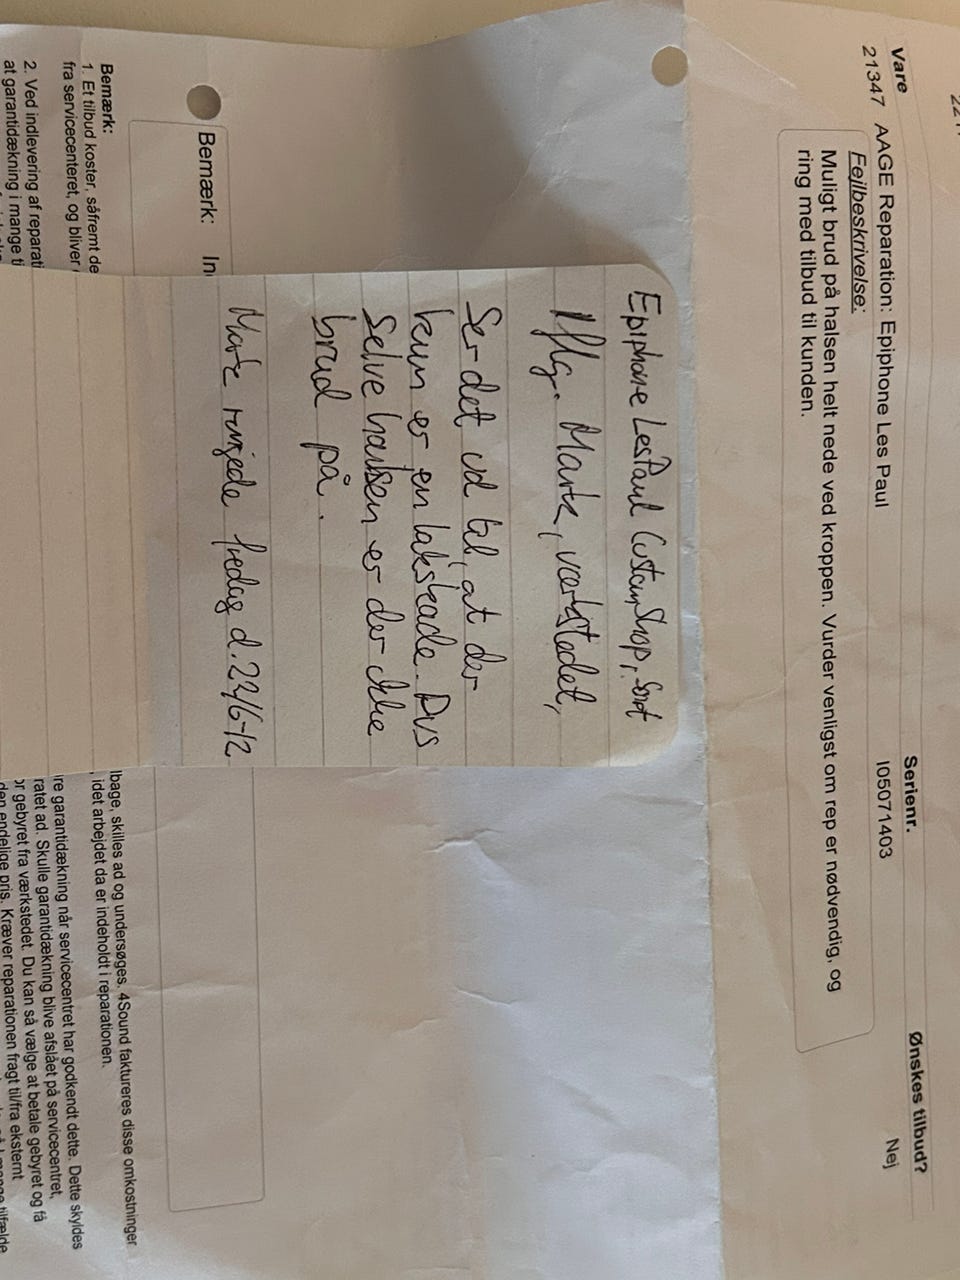 Vare
Serienr.
Ønskes tilbud?
21347 AAGE Reparation: Epiphone Les Paul
I05071403
Nej
Fejlbeskrivelse:
Muligt brud på halsen helt nede ved kroppen. Vurder venligst om rep er nødvendig, og
ring med tilbud til kunden.
Epiphone Les Paul Custom Shop, sort
Iflg. Martz, værkstedet,
Ser det ud til, at der
kun er en lakskade. Dvs
Selve halsen er der ikke
brud på.
ringede fredag d. 22/6-12
Bemærk: In
Bemærk:
1. Et tilbud koster, såfremt de
lbage, skilles ad og undersøges. 4Sound faktureres disse omkostninger
fra servicecenteret, og bliver
, idet arbejdet da er indeholdt i reparationen.
2. Ved indlevering af reparati
re garantidækning når servicecentret har godkendt dette. Dette skyldes
at garantidækning i mange ti
ratet ad. Skulle garantidækning blive afslået på servicecentret,
or gebyret fra værkstedet. Du kan så vælge at betale gebyret og få
den endelige pris. Kræver reparationen fragt til/fra eksternt